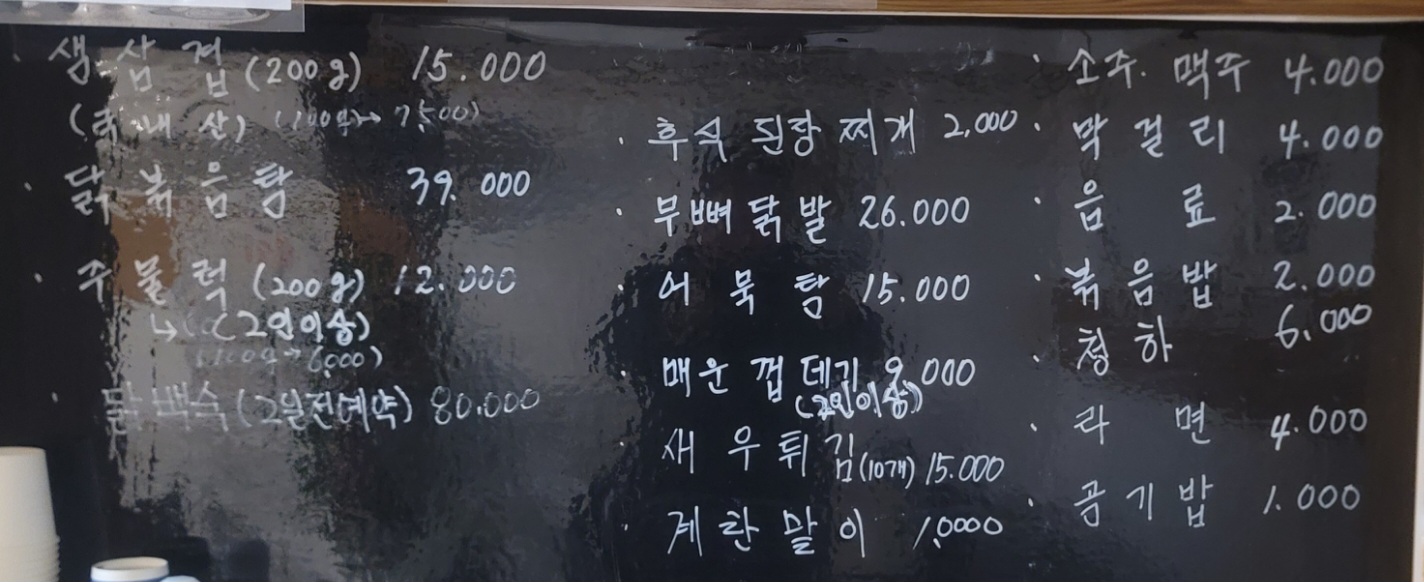 · 생 삼 겹 (200g) 15.000
(국내산) (100g→7,500)
· 닭 볶 음 탕 39.000
· 주 물 럭 (200g) 12.000
↳ (2인이상)
(100g→6,000)
· 닭백숙 (2일전예약) 80.000
· 후식 된장 찌개 2,000
· 무뼈닭발 26.000
· 어 묵 탕 15.000
· 매운 껍데기 9,000
(2인이상)
· 새 우 튀 김 (10개) 15.000
· 계 란 말 이 1,0000
· 소주. 맥주 4.000
· 막 걸 리 4.000
· 음 료 2.000
· 볶 음 밥 2.000
· 청 하 6,000
· 라 면 4.000
· 공 기 밥 1.000